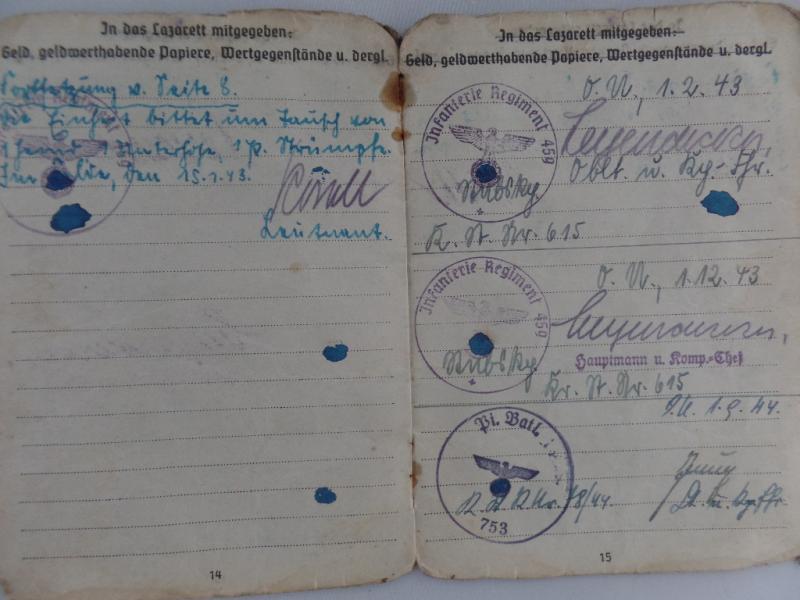 In das Lazarett mitgegeben:
Geld, geldwerthabende Papiere, Wertgegenstände u. dergl.
Fortsetzung v. Seite 8.
Die Einheit bittet um Tausch von
1 Hemd 1 Unterhose, 1 P. Strümpfe.
Im Felde, den 25.1.43.
Leutnant.
14
In das Lazarett mitgegeben:
Geld, geldwerthabende Papiere, Wertgegenstände u. dergl.
O. U., 1.2.43
Infanterie Regiment 459
Oblt. u. Kp.-Fhr.
Stabskp.
K. St. Nr. 615
O. U., 1.12.43
Infanterie Regiment 459
Stabskp.
Hauptmann u. Komp.-Chef
Kr. St. Nr. 615
O.U. 1.9.44.
Pi. Batl.
18/44
Lt. u. Kp. Fhr.
753
15